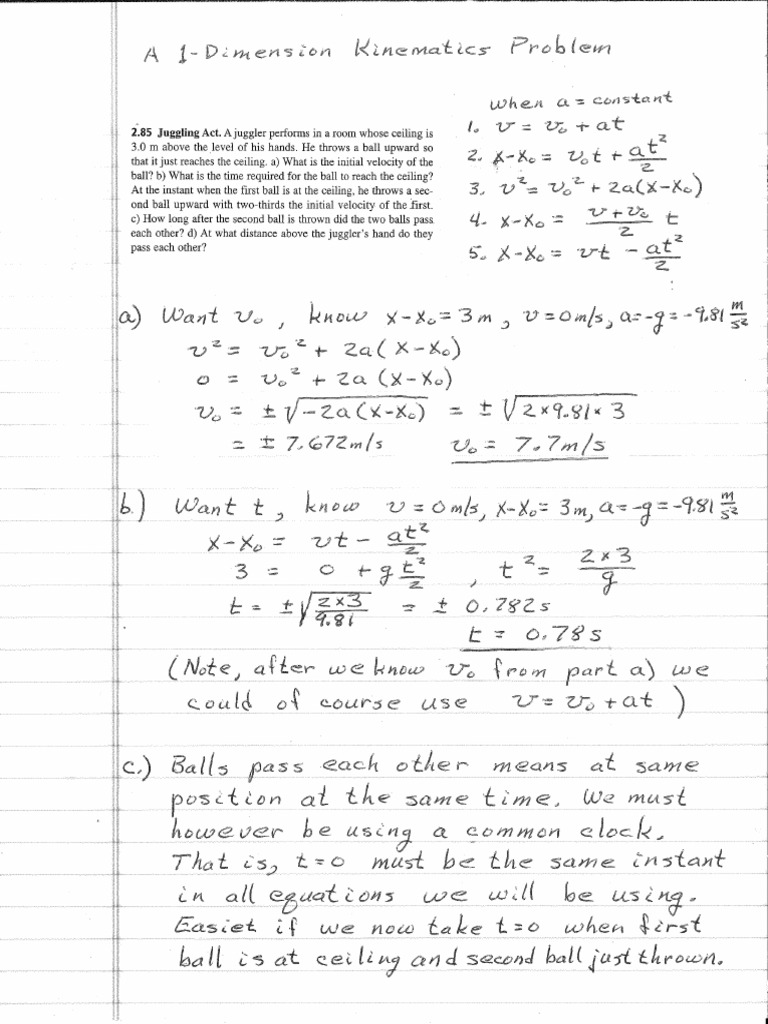 A 1-Dimension Kinematics Problem
2.85 Juggling Act. A juggler performs in a room whose ceiling is
3.0 m above the level of his hands. He throws a ball upward so
that it just reaches the ceiling. a) What is the initial velocity of the
ball? b) What is the time required for the ball to reach the ceiling?
At the instant when the first ball is at the ceiling, he throws a sec-
ond ball upward with two-thirds the initial velocity of the first.
c) How long after the second ball is thrown did the two balls pass
each other? d) At what distance above the juggler's hand do they
pass each other?
when a = constant
1. v = v₀ + at
2. x-x₀ = v₀t + at²/2
3. v² = v₀² + 2a(x-x₀)
4. x-x₀ = (v+v₀)/2 t
5. x-x₀ = vt - at²/2
a) Want v₀, know x-x₀ = 3m, v = 0m/s, a=-g = -9.81 m/s²
v² = v₀² + 2a(x-x₀)
0 = v₀² + 2a (x-x₀)
v₀ = ±√(-2a(x-x₀)) = ±√(2×9.81×3)
= ± 7.672m/s v₀ = 7.7m/s
b.) Want t, know v = 0m/s, x-x₀ = 3m, a=-g = -9.81 m/s²
x-x₀ = vt - at²/2
3 = 0 + g t²/2 , t² = 2×3/g
t = ±√(2×3/9.81) = ± 0.782s
t = 0.78s
(Note, after we know v₀ from part a) we
could of course use v = v₀ + at )
c.) Balls pass each other means at same
position at the same time. We must
however be using a common clock.
That is, t=0 must be the same instant
in all equations we will be using.
Easiet if we now take t=0 when first
ball is at ceiling and second ball just thrown.